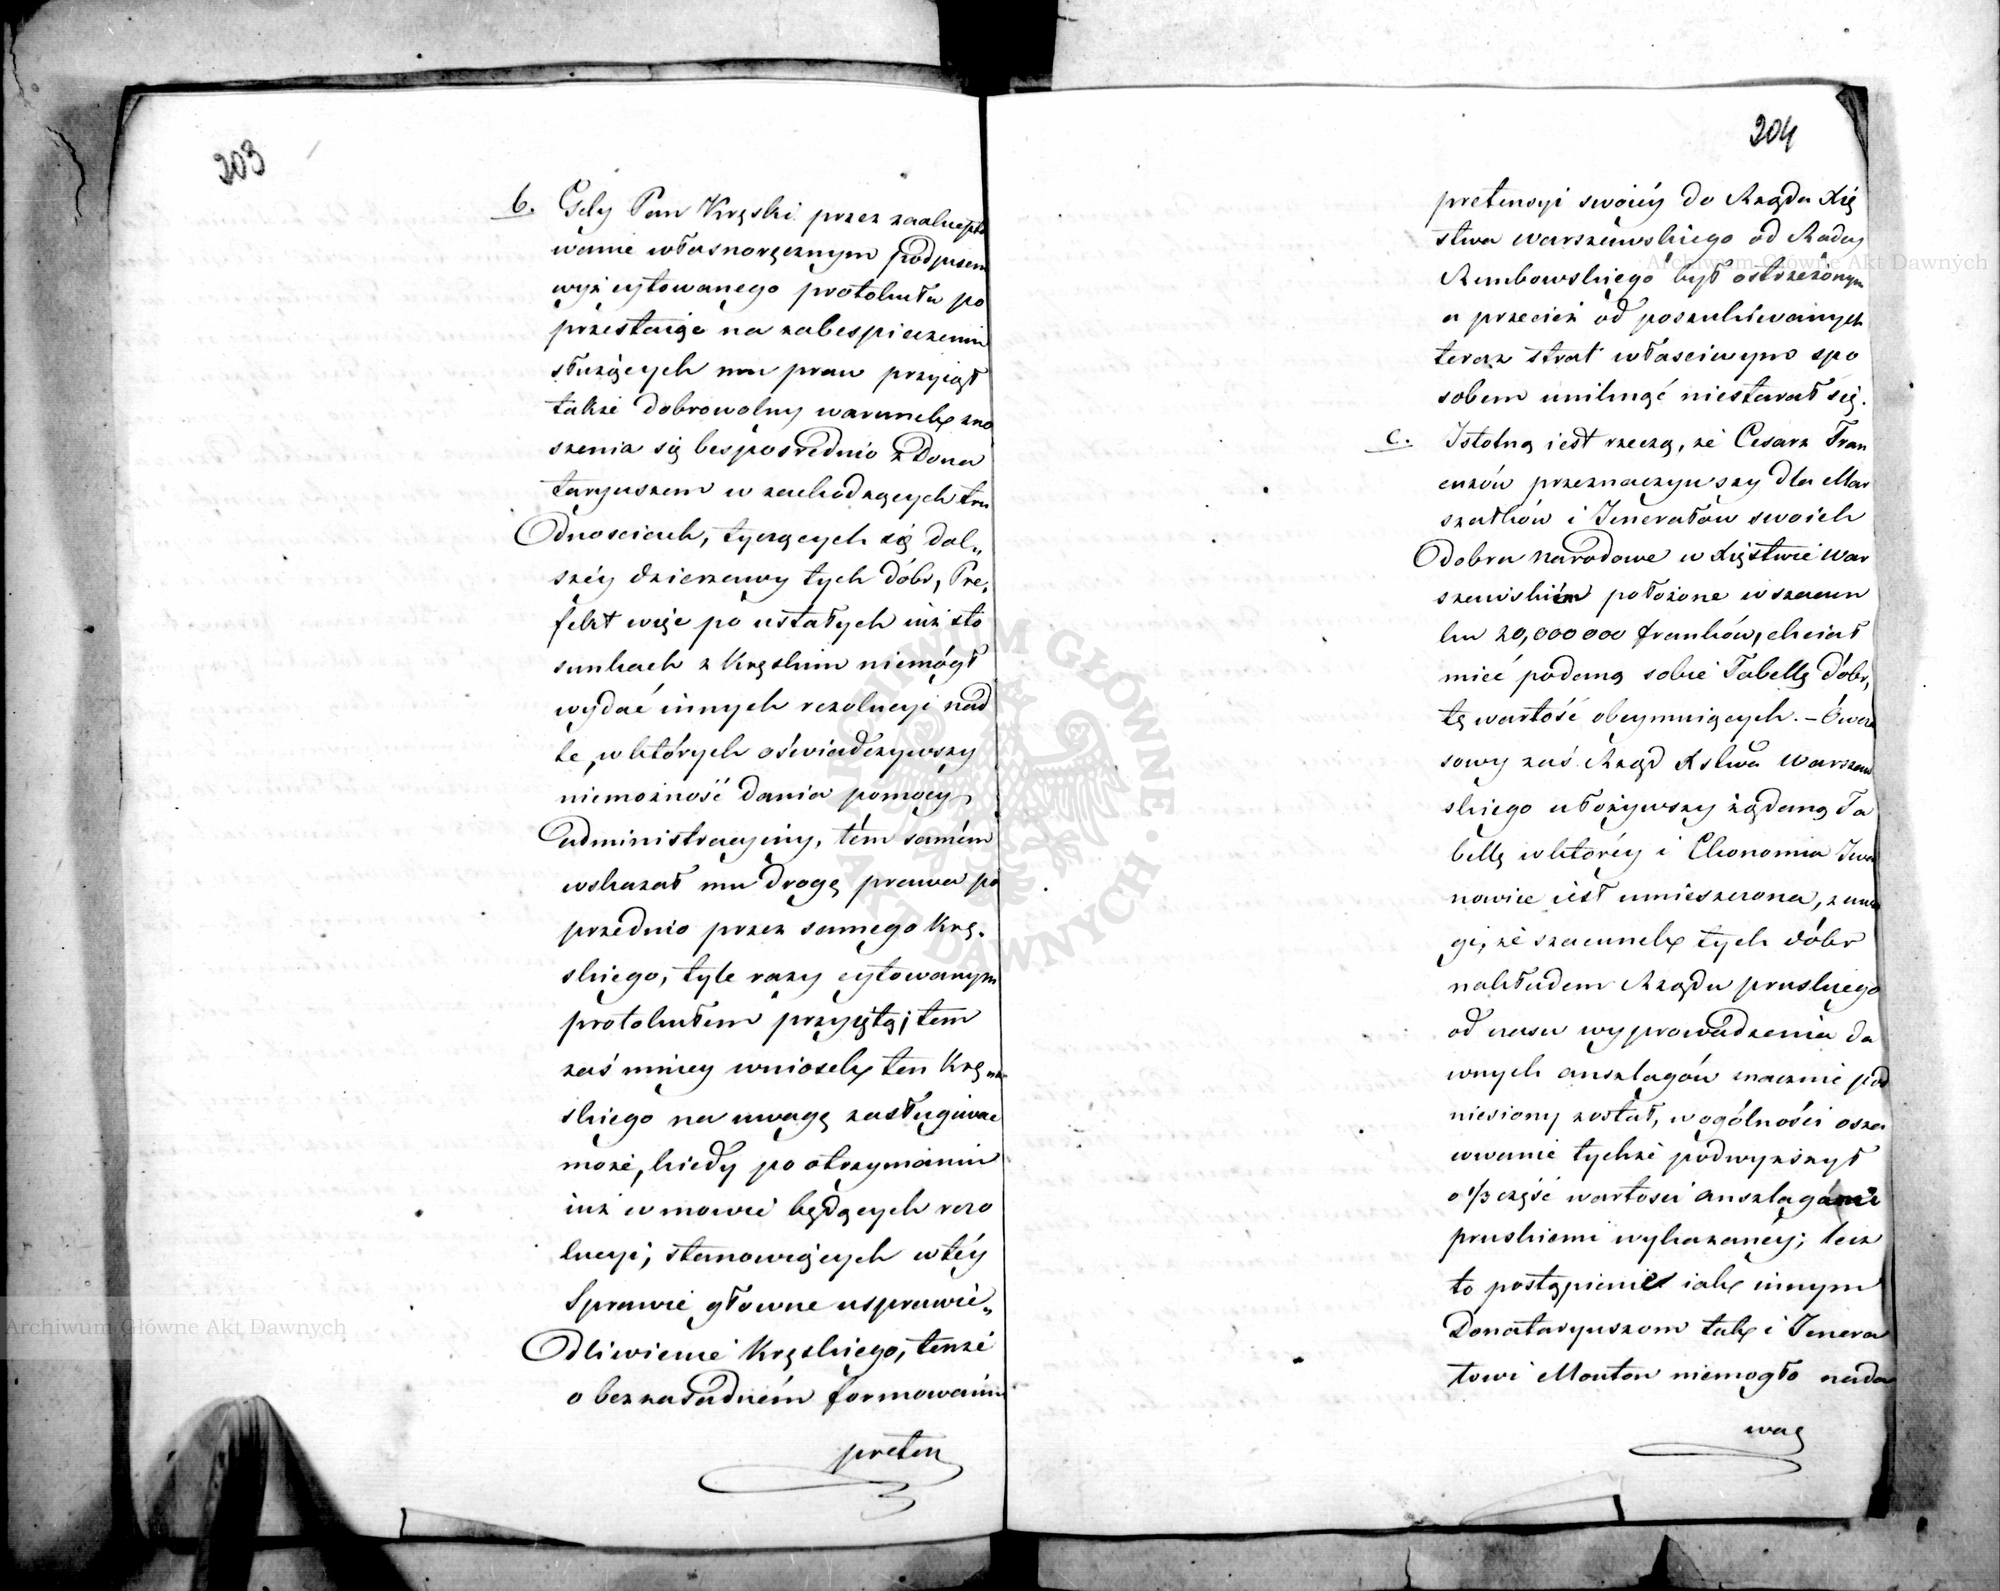 203
b. Gdy Pan Kręski przez zaakcepto
wanie własnoręcznym podpisem
wyż cytowanego protokułu po
przestaiąc na zabespieczeniu
służących mu praw przyiął
także dobrowolny warunek zno
szenia się bespośrednio z Dona
taryuszem w zachodzących tru
dnosciach, tyczących się dal„
széy dzierzawy tych dóbr, Pre„
fekt więc po ustałych iuż sto
sunkach z Kręskim niemógł
wydać innych rezolucyi nad
te, w których oświadczywszy
niemożność dania pomocy
administracyiny, tém samém
wskazał mu drogę prawa po
przednio przez samego Krę„
skiego, tyle razy cytowanym
protokułem przyiętą; tem
zaś mniey wniosek ten Krę„
skiego na uwagę zasługiwac
może, kiedy po otrzymaniu
iuż w mowie będących rezo
lucyi, stanowiących w téy
Sprawie główne usprawie„
dliwienie Kręskiego, tenże
o bezzasadném formowaniu
preten
204
pretensyi swoiéy do Rządu Xię
stwa Warszawskiego od Rady
Rembowskiego był ostrzeżonym
a przecież od poszukiwanych
teraz strat właściwym spo
sobem uniknąć niestarał się.
c. Istotną iest rzeczą, że Cesarz Fran
cuzów przeznaczywszy dla Mar
szałków i Jenerałów swoich
dobra narodowe w Xięstwie War
szawskiém położone w szacun
ku 20,000 000 franków, chciał
mieć podaną sobie Tabellę dóbr,
tę wartość obeymuiących. – Ówcza
sowy zaś Rząd Xstwa Warszaw
skiego ułożywszy żądaną Ta
bellę w któréy i Ekonomia Iwa
nowice iest umieszczona, z uwa
gi, że szacunek tych dóbr
nakładem Rządu pruskiego
od czasu wyprowadzenia da
wnych anszlagów znacznie pod
niesiony został, w ogólności osza
cowanie tychże podwyższył
o 1/3 część wartości anszlagami
pruskiemi wykazanéy; lecz
to postąpienie iak innym
Donataryuszom tak i Jenera
łowi Mouton niemogło nada
wać
Archiwum Główne Akt Dawnych
Archiwum Główne Akt Dawnych
ARCHIWUM GŁÓWNE · AKT DAWNYCH ·